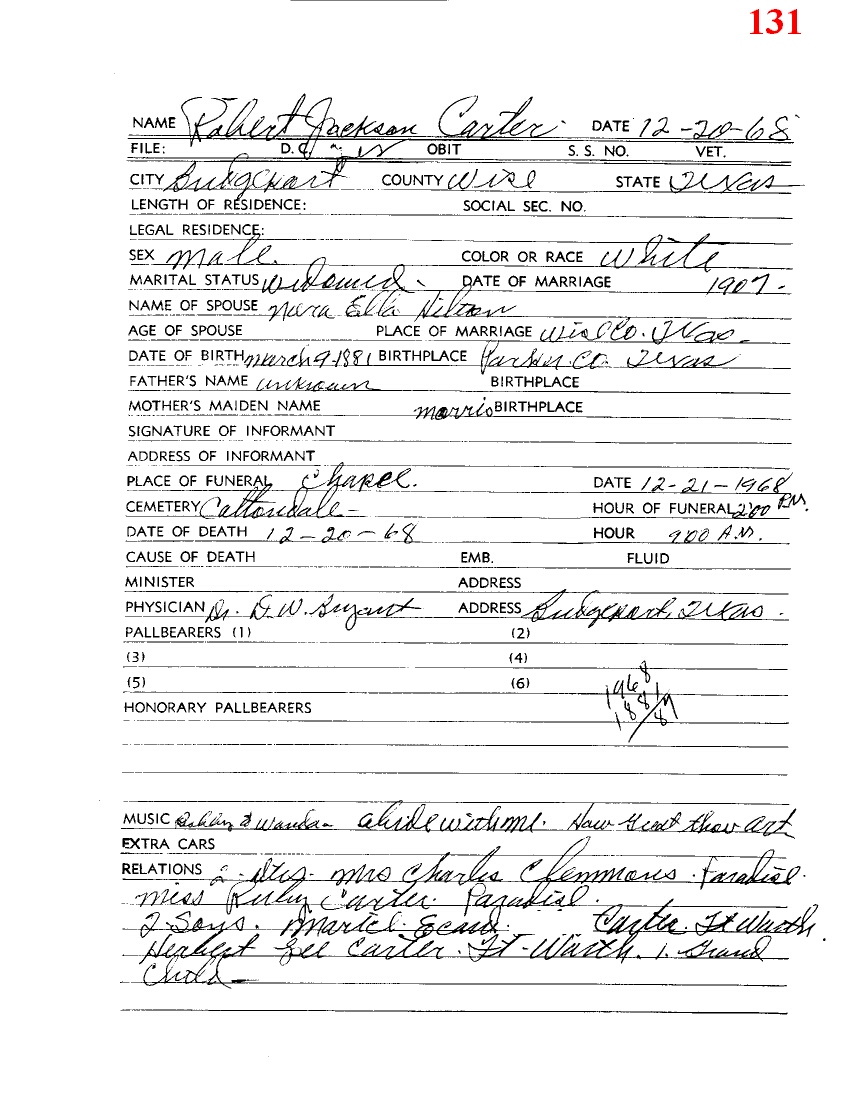 131
NAME Robert Jackson Carter DATE 12-20-68
FILE: D.C. OBIT S. S. NO. VET.
CITY Bridgeport COUNTY Wise STATE Texas
LENGTH OF RESIDENCE: SOCIAL SEC. NO.
LEGAL RESIDENCE:
SEX Male. COLOR OR RACE White
MARITAL STATUS Widowed - DATE OF MARRIAGE 1907 -
NAME OF SPOUSE Ella Hilton
AGE OF SPOUSE PLACE OF MARRIAGE Wise Co. Texas -
DATE OF BIRTH March 9-1881 BIRTHPLACE Parker Co. Texas
FATHER'S NAME unknown BIRTHPLACE
MOTHER'S MAIDEN NAME Morris BIRTHPLACE
SIGNATURE OF INFORMANT
ADDRESS OF INFORMANT
PLACE OF FUNERAL Chapel. DATE 12-21-1968
CEMETERY Cottondale - HOUR OF FUNERAL 2:00 P.M.
DATE OF DEATH 12-20-68 HOUR 900 A.M.
CAUSE OF DEATH EMB. FLUID
MINISTER ADDRESS
PHYSICIAN Dr. D.W. Bryant ADDRESS Bridgeport, Texas.
PALLBEARERS (1) (2)
(3) (4)
(5) (6)
1968
1881
87
HONORARY PALLBEARERS
MUSIC & Wanda - Abide with me. How Great thou art
EXTRA CARS
RELATIONS 2-dtrs- Mrs Charles Clemmons. Paradise.
Miss Ruby Carter. Paradise.
2 Sons. Carter. Ft Worth.
Herbert Lee Carter. Ft-Worth. 1. Grand
Child -